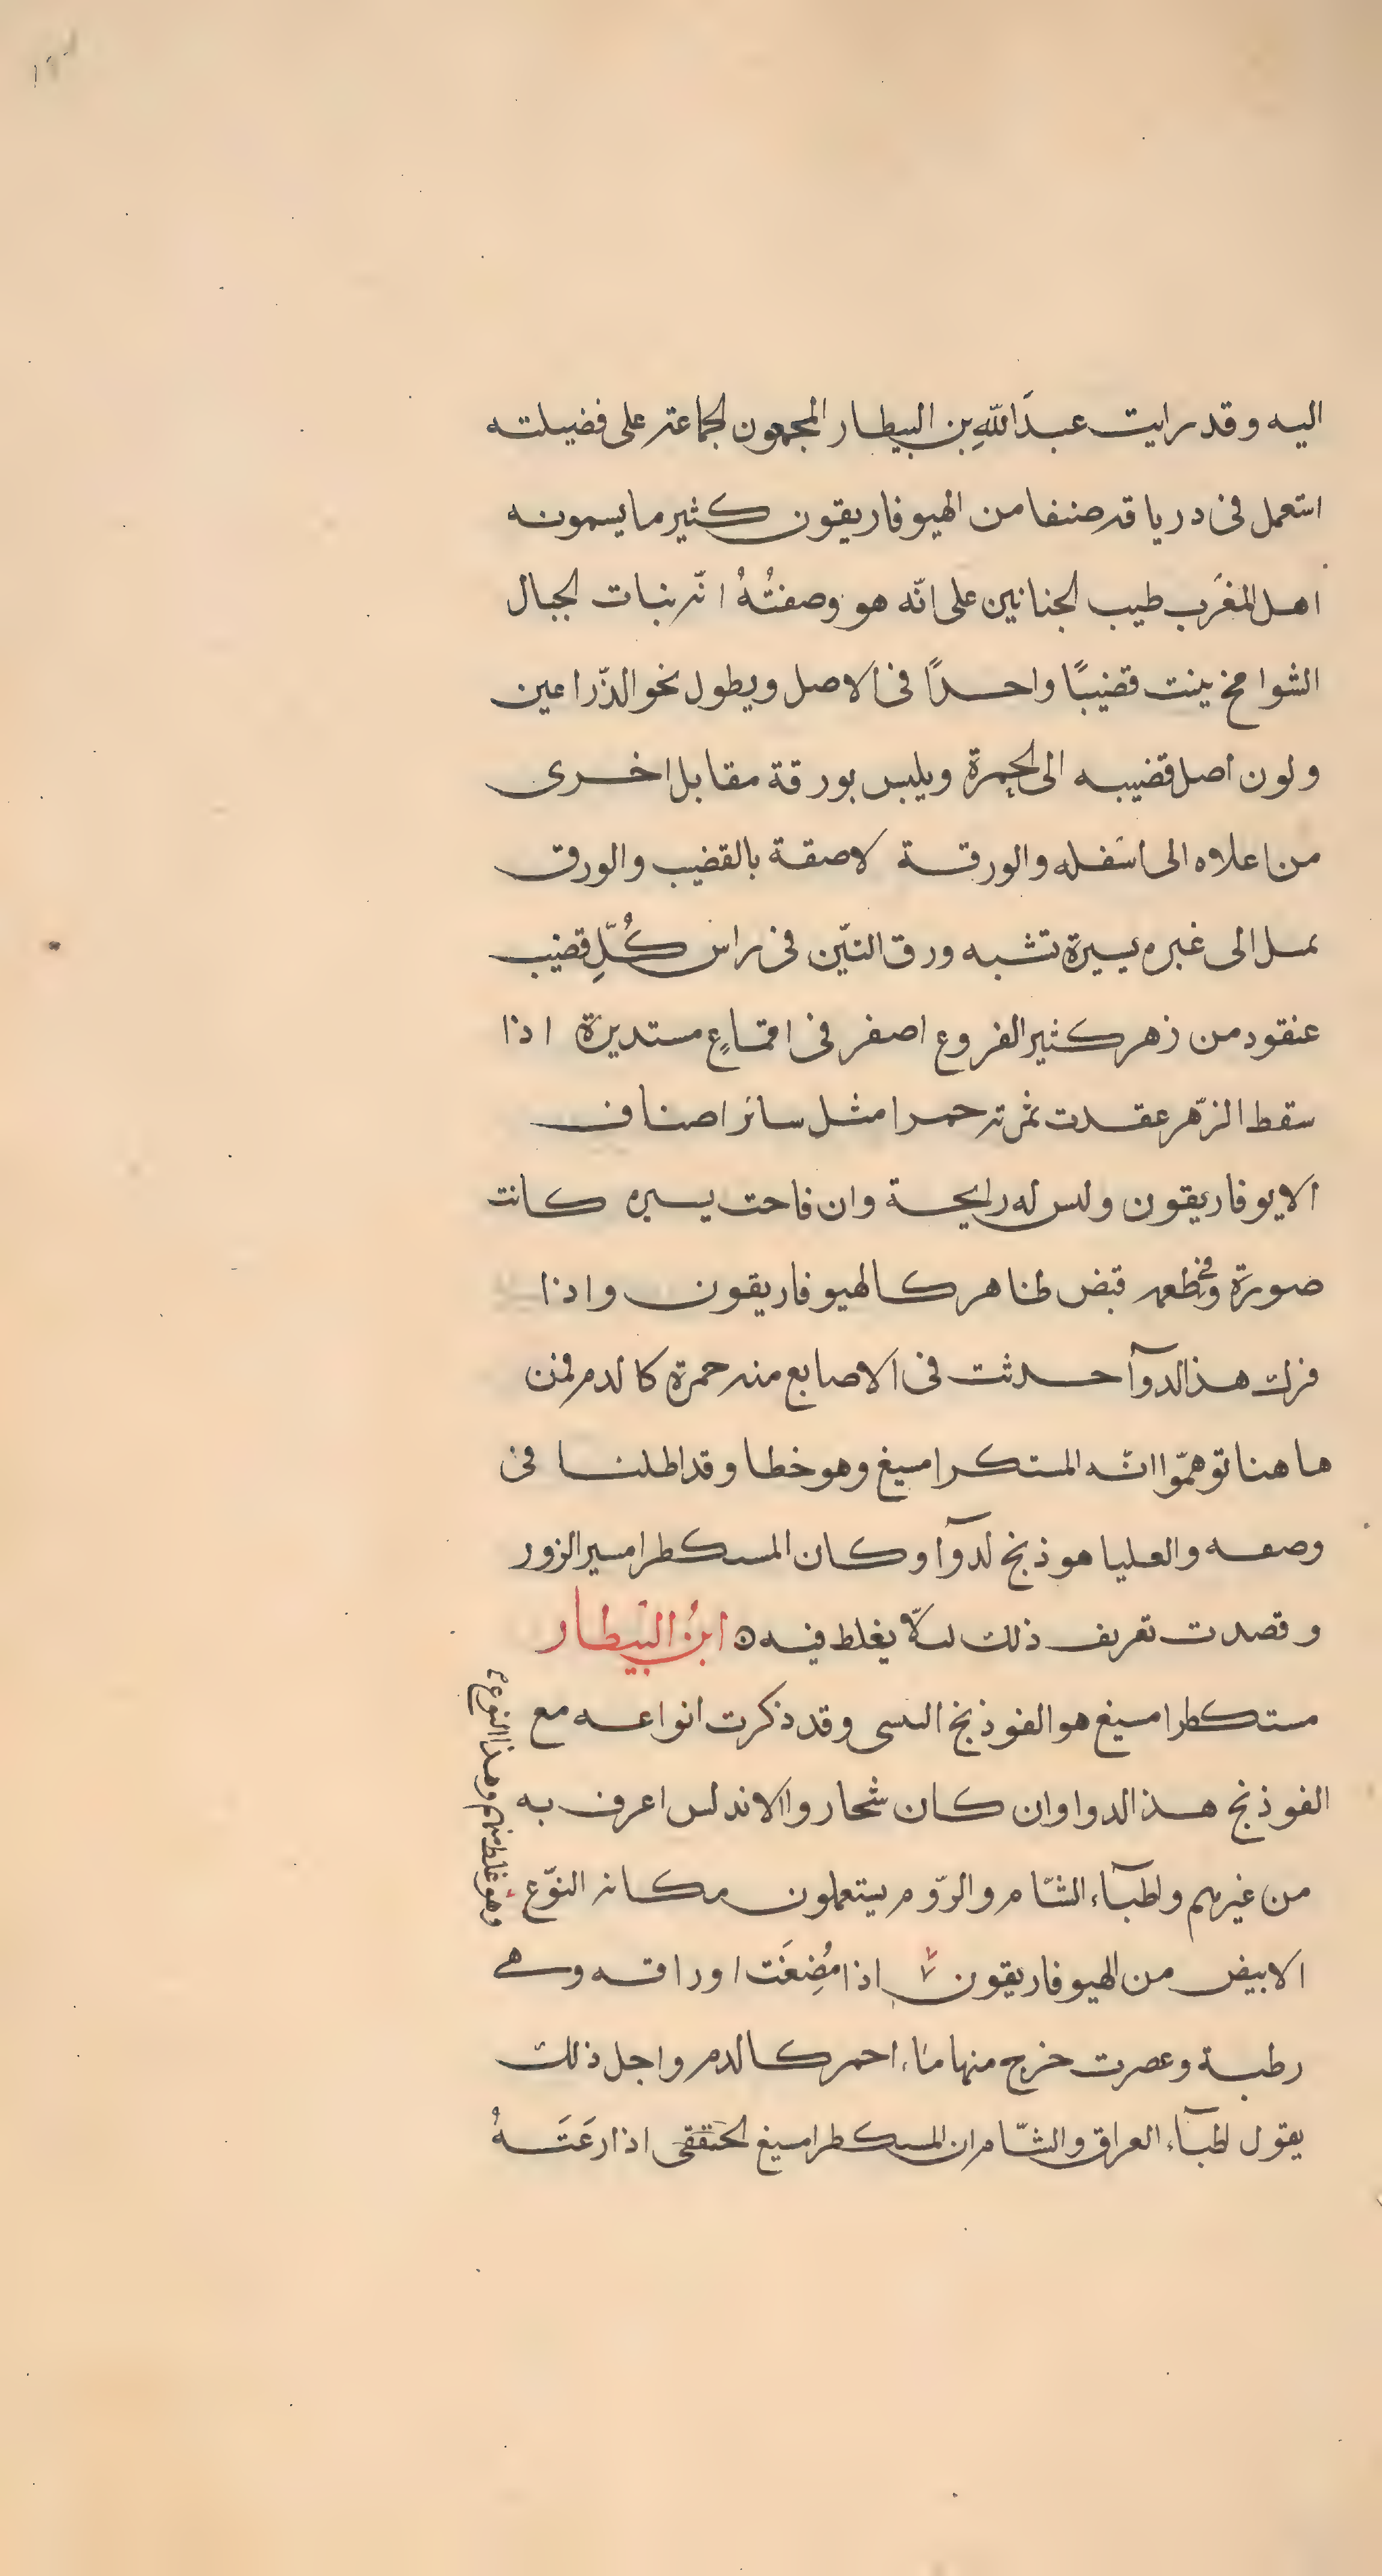 اليه وقد رايت عبدَ اللّهِ بن البيطار المجمعون لجماعته على فضيلته
استعمل فى درياقه صنفا من الهيوفاريقون كثير ما يسمونه
اهل المغرَب طيب الجنانين على انّه هو وصفتُهُ انّه نبات الجبال
الشوامخ ينبت قضيبًا واحدًا فى الاصل ويطول نحو الذّراعين
ولون اصل قضيبه الى الحمرة ويلبس بورقة مقابل اخرى
من اعلاه الى اسفله والورقة لاصقة بالقضيب والورق
يمل الى غبره يسيرة تشبه ورق التّين فى راس كُلِّ قضيب
عنقود من زهر كثير الفروع اصفر فى اقماعٍ مستديرة اذا
سقط الزّهر عقدت ثمرته حمرا مثل سائر اصناف
الايوفاريقون وليس له رايحة وان فاحت يسيره كانت
صورة وفى طعمه قبض ظاهر كالهيوفاريقون واذا
فرك هذ الدوآ حدثت فى الاصابع منه حمرة كالدم فمن
هاهنا توهمّوا انّه المستكرامسيغ وهو خطا وقد اطلنا فى
وصعه والعليا هوذنخ لدوآ وكان المسكطرامسير الزور
وقصدت تعريف ذلك لئلّا يغلط فيه ٥ ابنُ البَيطار
مستكطرامسيغ هو الفوذنخ البسى وقد ذكرت انواعه مع
الفوذنخ هذ الدوا وان كان شجاروا الاندلس اعرف به
من غيرهم واطبآء الشّام والرّوم يستعملون مكانه النوّع
الابيض من الهيوفاريقون اذا مُضِغَت اوراقه وهى
رطبة وعصرت خرج منها مآء احمر كالدم واجل ذلك
يقول اطبآء العراق والشّام ان المسكطرامسيغ الحقيقى اذا رعَتَهُ
وهو غلط منهم وهذا النوع